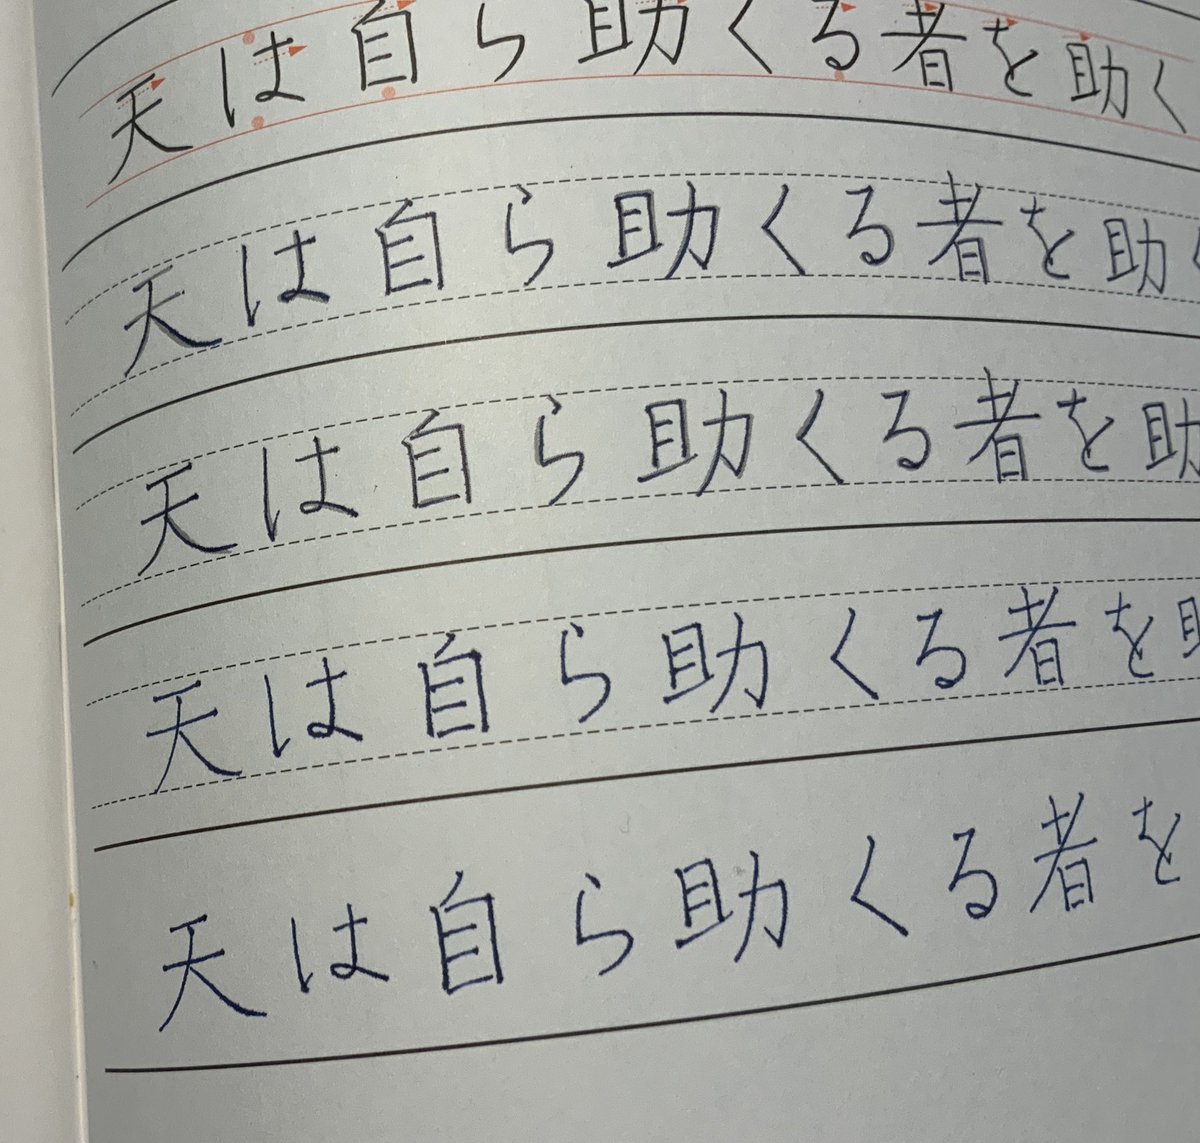 天は自ら助くる者を助く
天は自ら助くる者を助く
天は自ら助くる者を助
天は自ら助くる者を助
天は自ら助くる者を